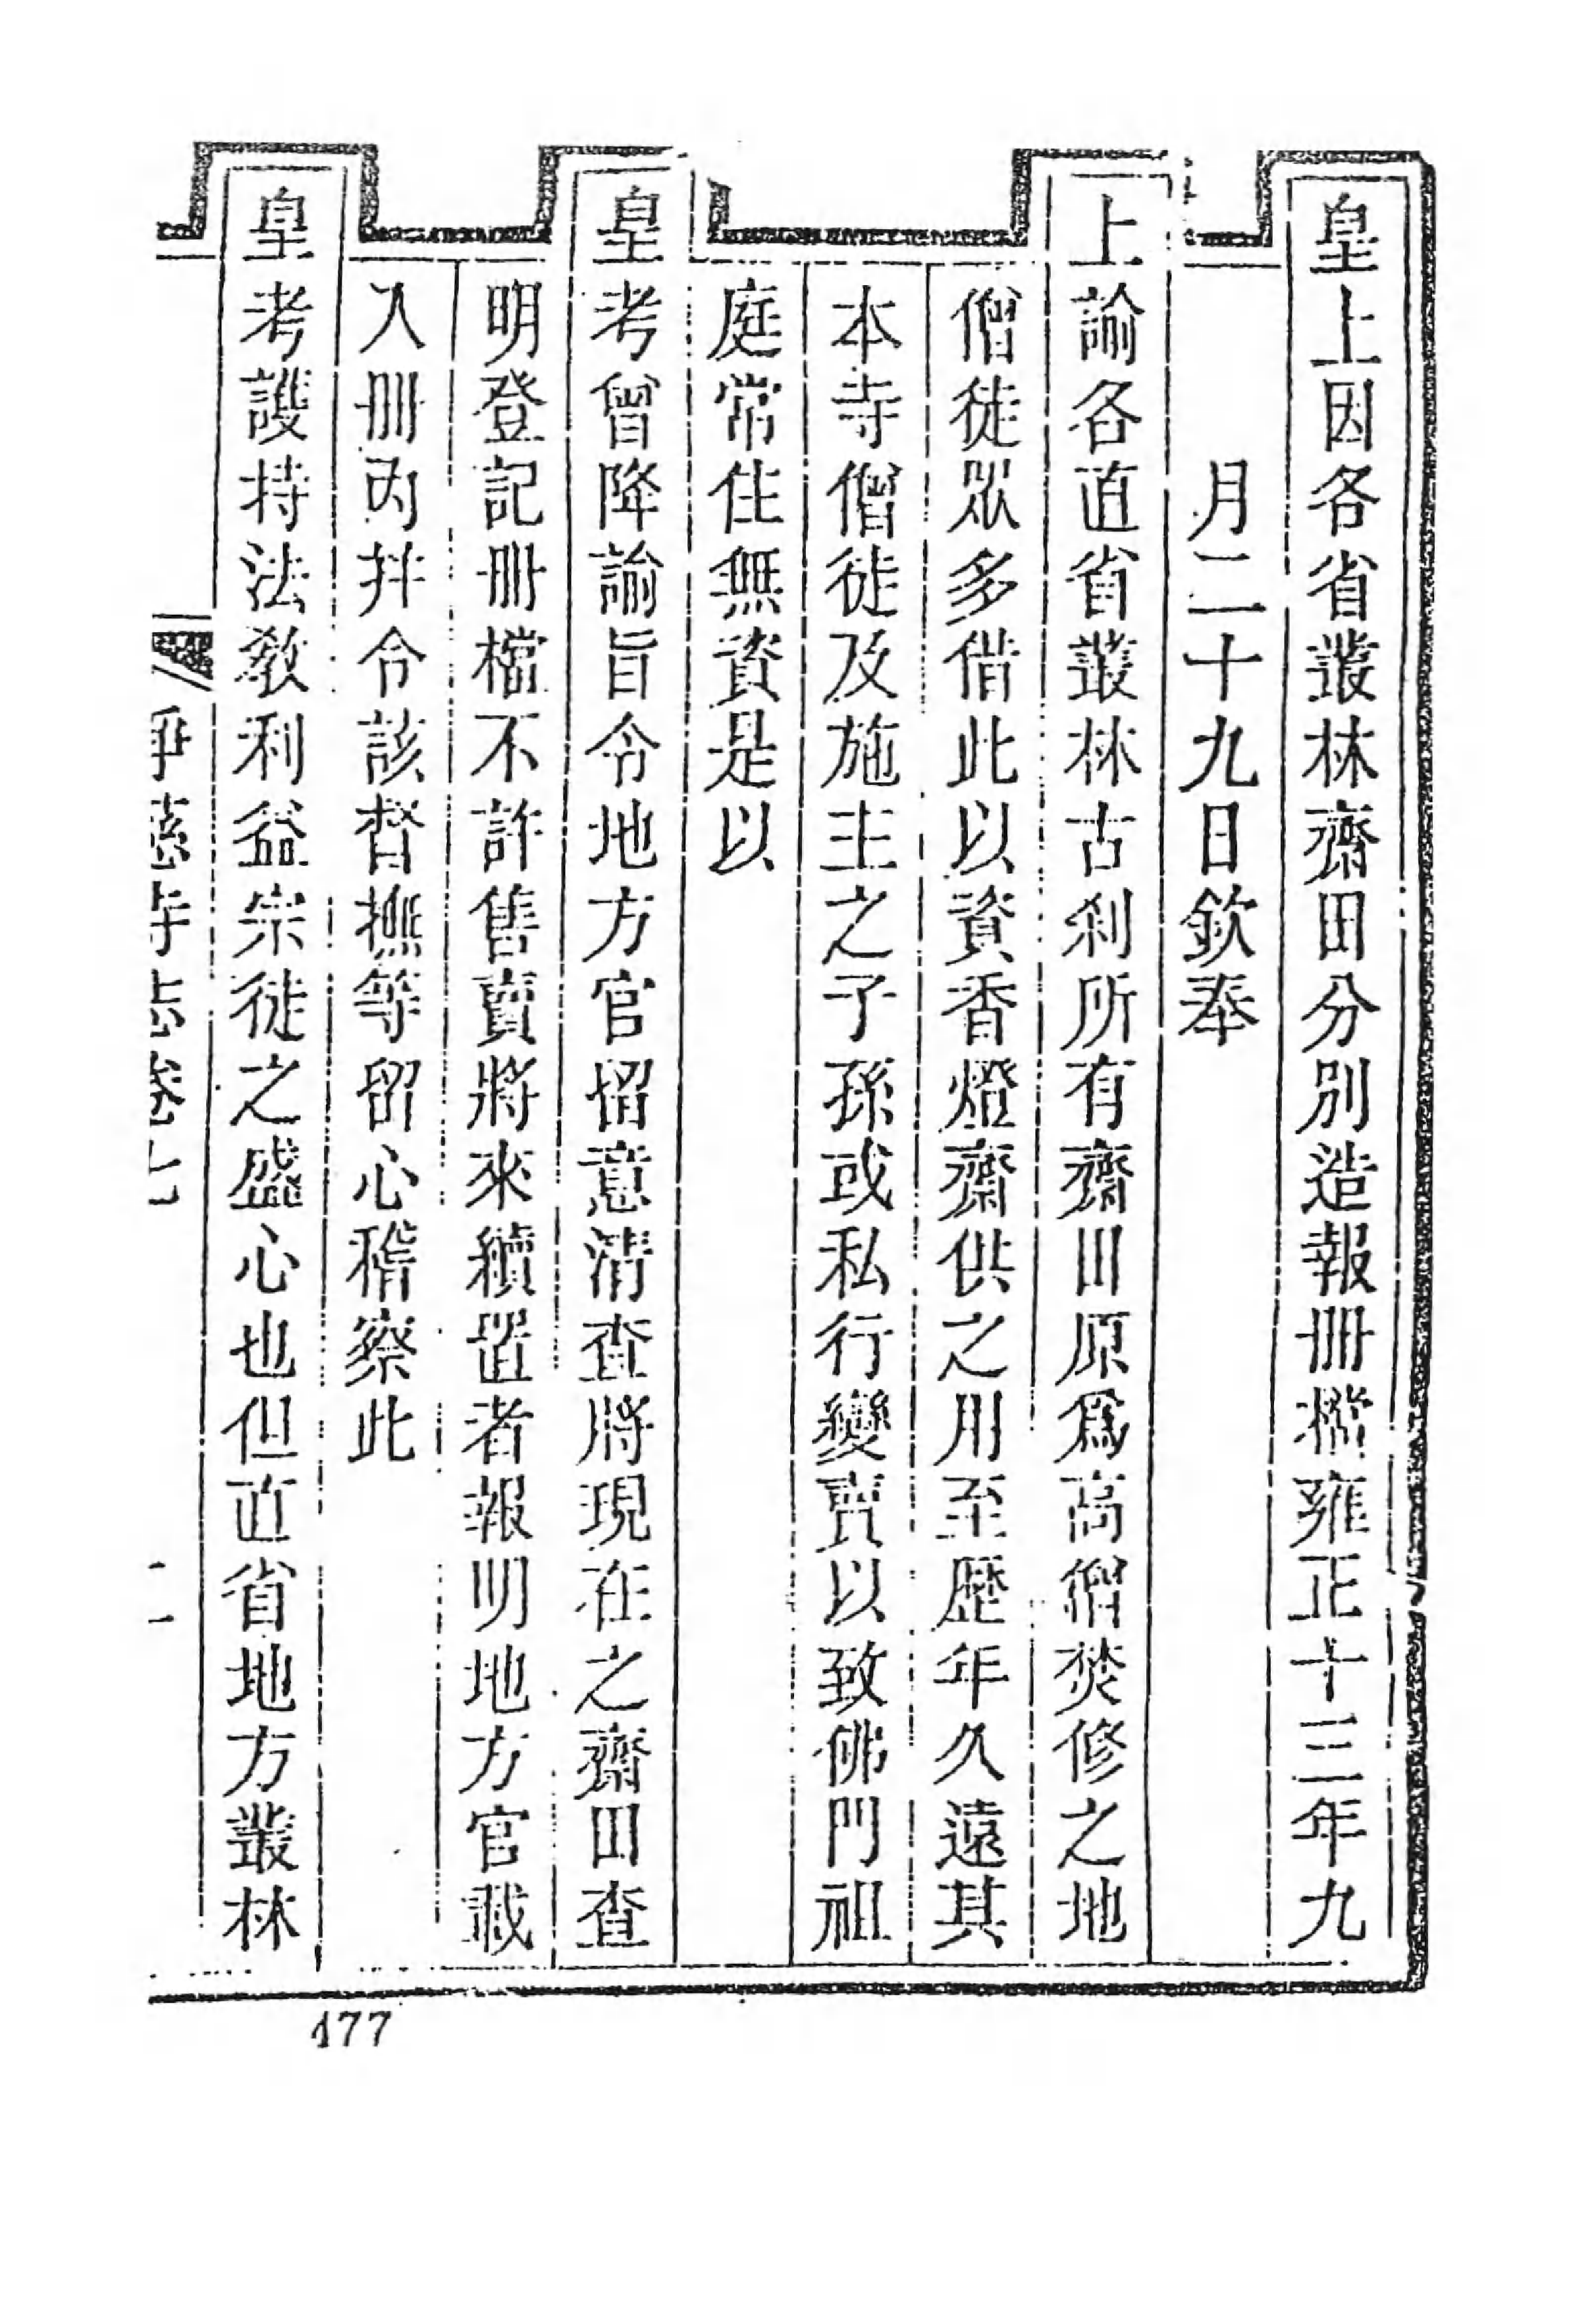 皇上因各省叢林齋田分別造報冊檔雍正十三年九
月二十九日欽奉
上諭各直省叢林古刹所有齋田原爲高僧焚修之地
僧徒眾多借此以資香燈齋供之用至歷年久遠其
本寺僧徒及施主之子孫或私行變賣以致佛門祖
庭常住無資是以
皇考曾降諭旨令地方官留意清查將現在之齋田查
明登記冊檔不許售賣將來續置者報明地方官載
入冊內并令該督撫等留心稽察此
皇考護持法教利益宗徒之盛心也但直省地方叢林
淨慈寺志卷七
477